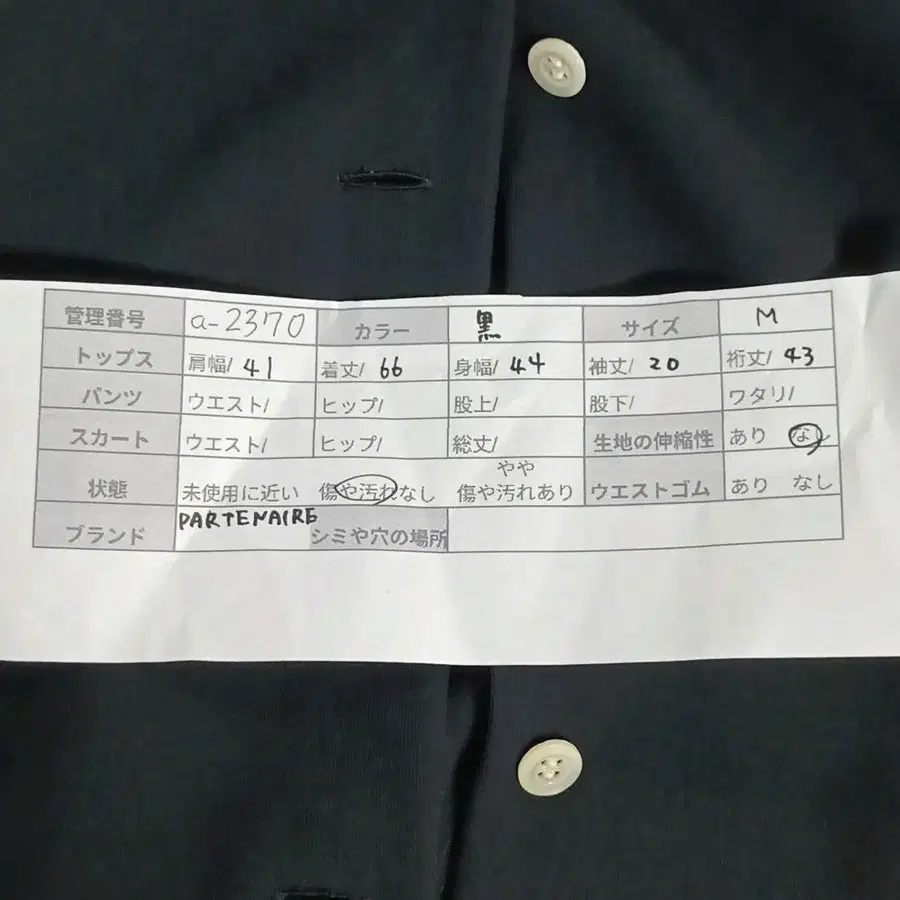 管理番号 a-2370 カラー 黒 サイズ M
トップス 肩幅/ 41 着丈/ 66 身幅/ 44 袖丈/ 20 裄丈/ 43
パンツ ウエスト/ ヒップ/ 股上/ 股下/ ワタリ/
スカート ウエスト/ ヒップ/ 総丈/ 生地の伸縮性 あり なし
状態 未使用に近い 傷や汚れなし やや傷や汚れあり ウエストゴム あり なし
ブランド PARTENAIRE シミや穴の場所